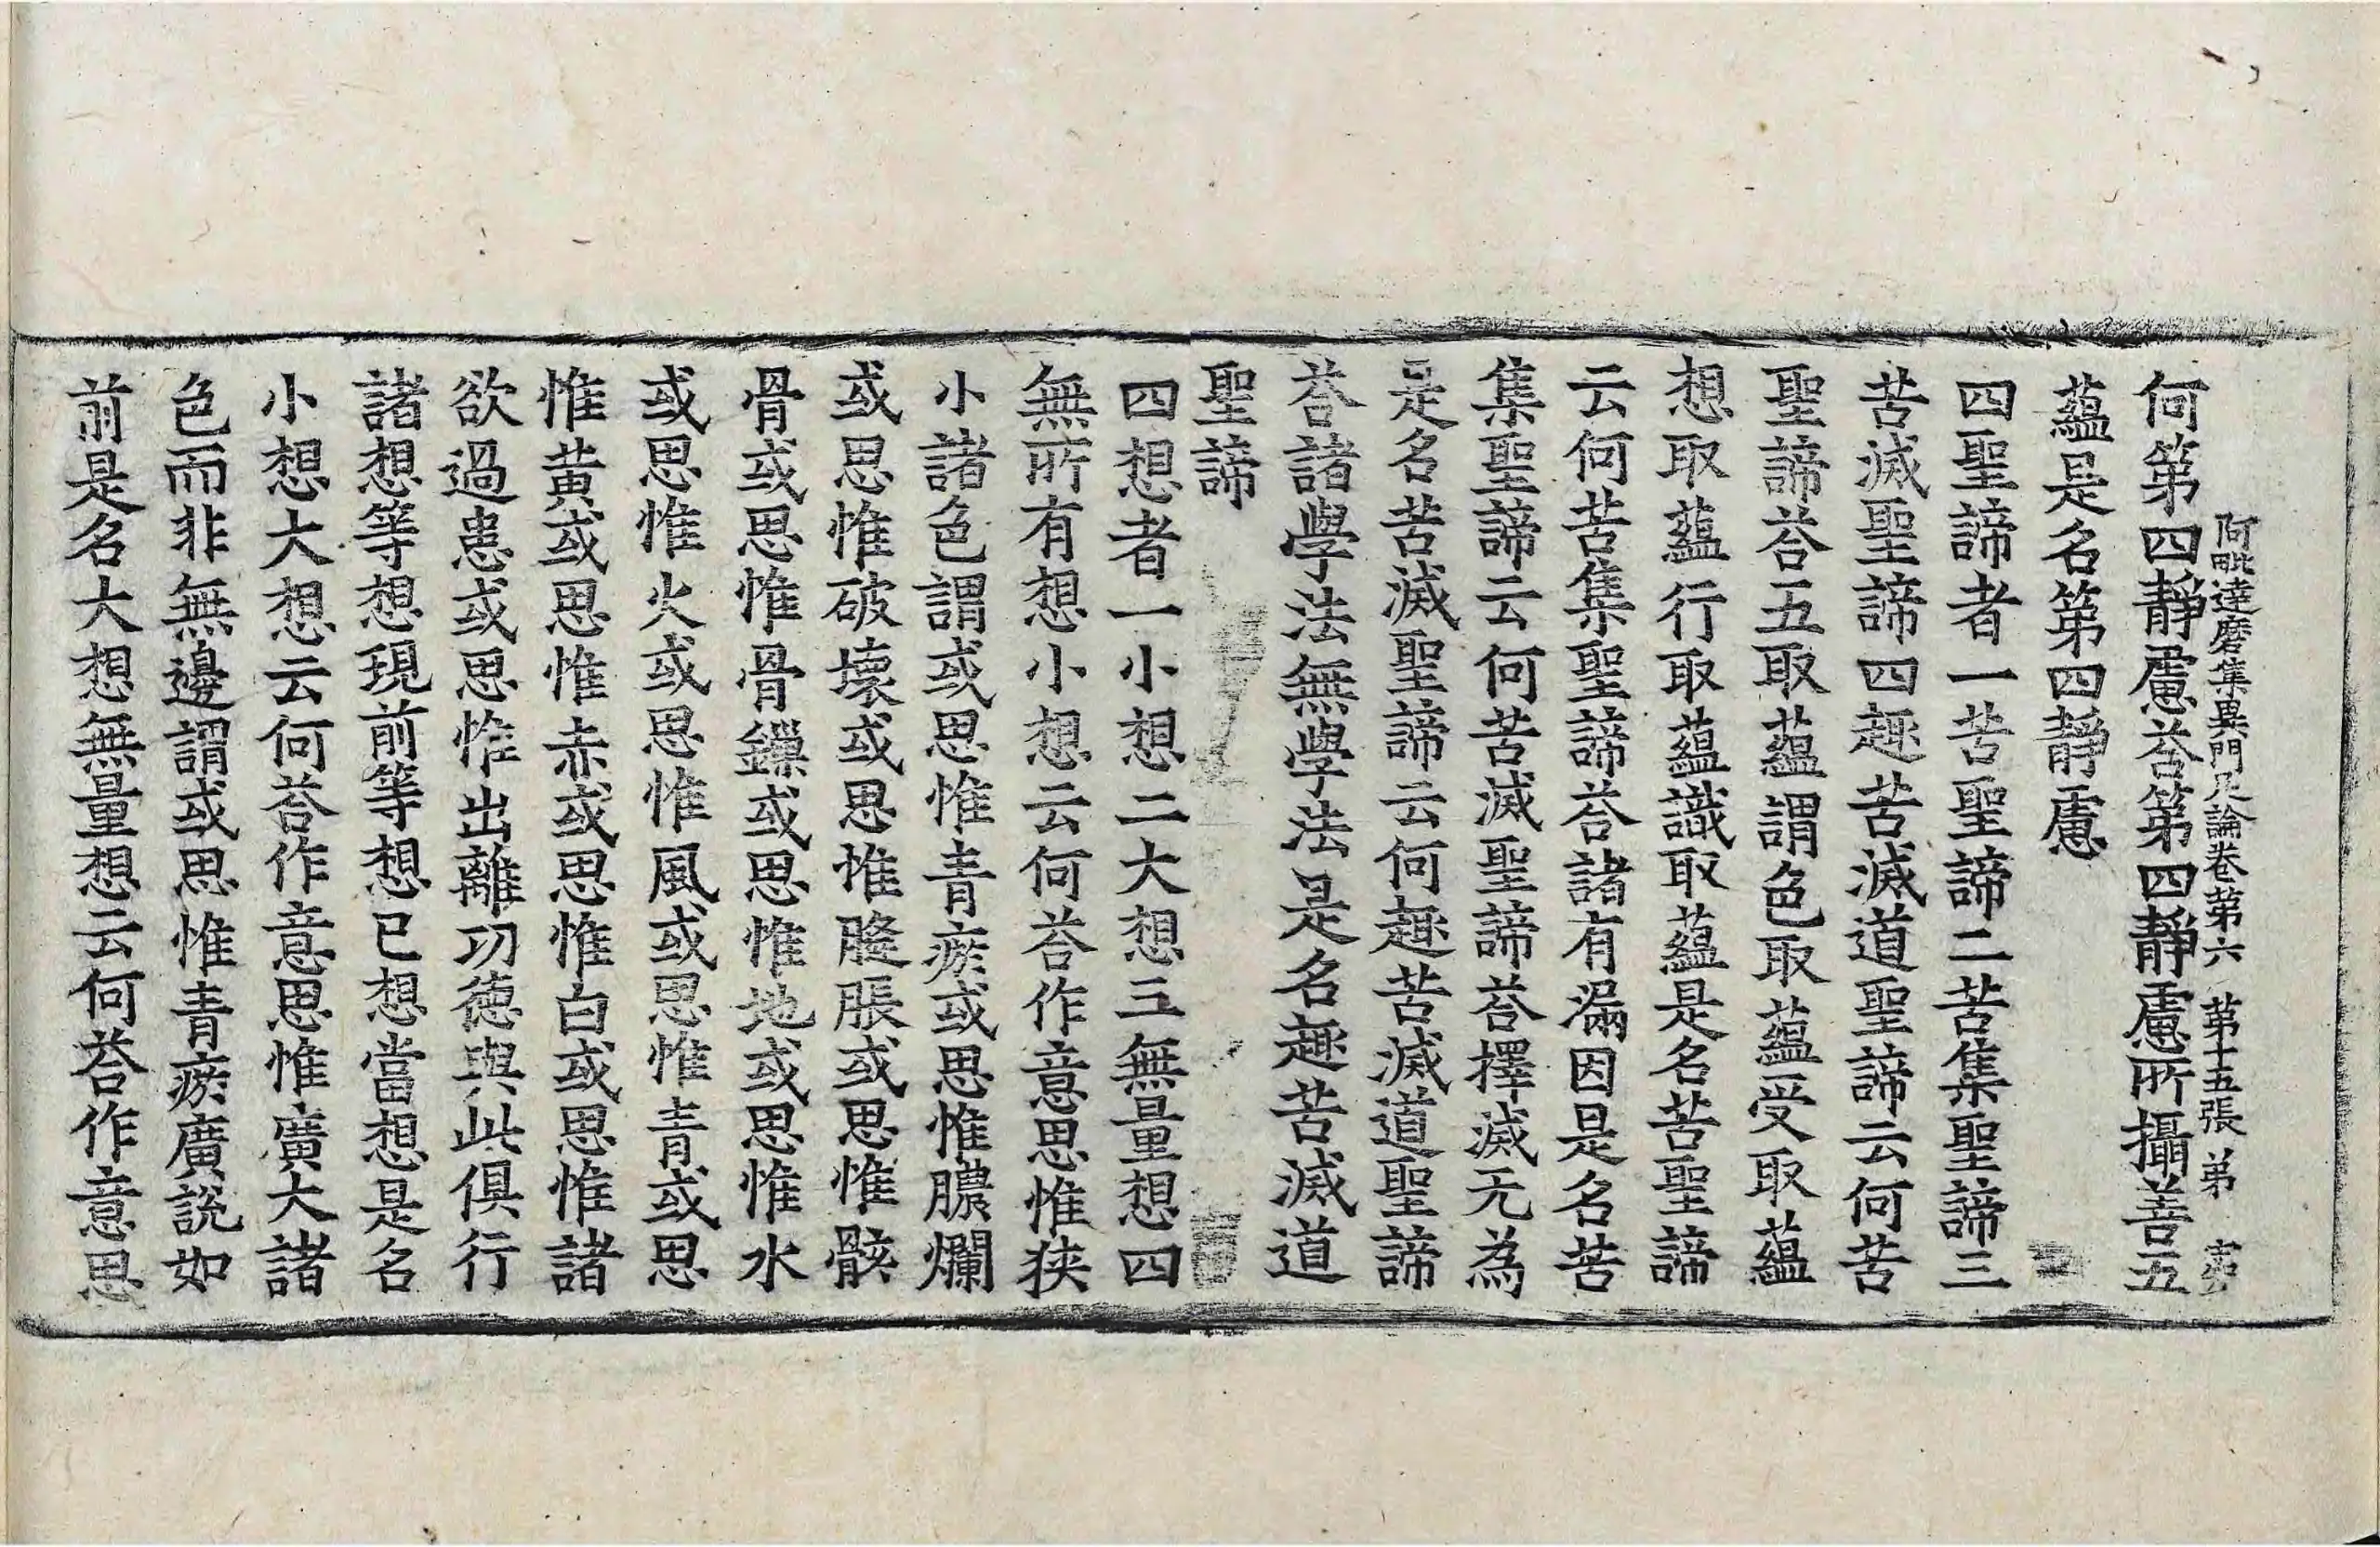 阿毗達磨集異門足論卷第六 第十五張 弟
何第四靜慮荅第四靜慮所攝善五
蘊是名第四靜慮
四聖諦者一苦聖諦二苦集聖諦三
苦滅聖諦四趣苦滅道聖諦云何苦
聖諦荅五取蘊謂色取蘊受取蘊
想取蘊行取蘊識取蘊是名苦聖諦
云何苦集聖諦荅諸有漏因是名苦
集聖諦云何苦滅聖諦荅擇滅无為
是名苦滅聖諦云何趣苦滅道聖諦
荅諸學法無學法是名趣苦滅道
聖諦
四想者一小想二大想三無量想四
無所有想小想云何荅作意思惟狹
小諸色謂或思惟青瘀或思惟膿爛
或思惟破壞或思惟膖脹或思惟骸
骨或思惟骨鏁或思惟地或思惟水
或思惟火或思惟風或思惟青或思
惟黃或思惟赤或思惟白或思惟諸
欲過患或思惟出離功德與此俱行
諸想等想現前等想已想當想是名
小想大想云何荅作意思惟廣大諸
色而非無邊謂或思惟青瘀廣說如
前是名大想無量想云何荅作意思